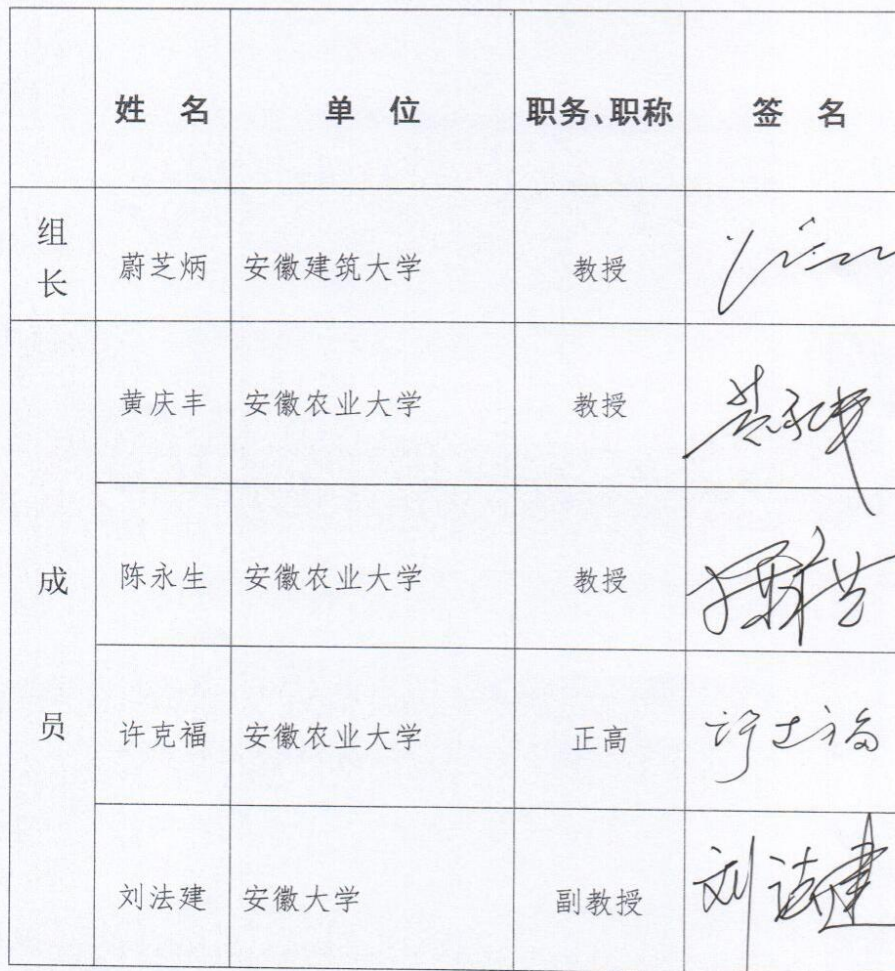 姓 名 单 位 职务、职称 签 名
组长 蔚芝炳 安徽建筑大学 教授
黄庆丰 安徽农业大学 教授
成员 陈永生 安徽农业大学 教授
许克福 安徽农业大学 正高 许克福
刘法建 安徽大学 副教授 刘法建